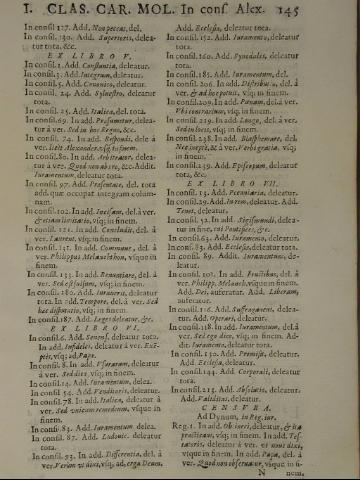 I. CLAS. CAR. MOL. In conſ Alex. 145
In conſil 127. Add. Non peccat, del.
In conſil. 130. Add. Superioris, delea-
tur tota, &c.
EX LIBRO V.
In conſil 2. Add. Conſtantia, deleatur.
In conſil 3. Add. Integrum, deleatur.
In conſil 5. Add. Conuentos, deleatur.
In conſil. 24. Add. Sylueſtro, deleatur
tota.
In conſil. 25. Add. Italica, del. tota.
In conſil. 69. In add. Præſumitur, delea-
tur à ver. Sed in hoc Regno, &c.
In conſil. 74. In add. Reſpondi, dele à
ver. licèt Alexander, vſq; in finem.
In conſil. 80. In add. Arbitrator, delea-
tur à ver. Quod non adeo, &c. Addit.
Iuramentum, deleatur.
In conſil. 97. Add. Præſentate, del. tota
add. quæ occupat integram colum-
nam.
In conſil. 102. In add. del. à ver.
vſq; in finem.
In conſil. 121. In add. Concludit, del. à
ver. Laurent. vſq; in finem.
In conſil. 131. In add. Communẽ, del. à
ver. Philippus Melancthon, vſque in
finem.
In conſil. 133. In add. del. à
ver. Sed vſq; in finem.
In conſil. 180. In add. Iurauero, deleatur
tota. In add. Tempore, del. à ver. Sed
hæc diſputatio, vſq; in finem.
In conſil. 187. Add. Leges deleatur, &c.
EX LIBRO VI.
In conſil. 6. Add. deleatur tota
In add. Infideles, deleatur à ver.
vſq; ad, Pape.
In conſil. 8. In add. Vſurarum, deleatur
à ver. Sed dico, vſq; in finem.
In conſil. 14. Add. Iuramentum, delea.
In conſil. 54. Add. Venditoris, deleatur.
In conſil. 78. In add. Italica, deleatur à
ver. Sed vnicum remedium, vſque in
finem.
In conſil. 83. Add. Iuramentum delea.
In conſil. 87. Add. Ludouic. deleatur
tota.
In conſil. 93. In add. Differentia, del. à
ver. Verùm vſq; ad, erga Deum.
Add. Eccleſia, deleatur tota.
In conſil. 152. Add. Iuramento, deleatur
tota.
In conſil. 160. Add. Synodales, deleatur
tota.
In conſil. 185. Add. Iuramentum, del.
In conſil. 206. In add. Diſtributio, del. à
ver. & ad hoc potuit, vſq; in finem.
In conſil. 209. In add. Pœnam, del. à ver.
vſq; in finem.
In conſil. 219. In add. Longo, del. à ver.
Sed in hoc, vſq; in finem.
In conſil. 238. In add. Blaſphemare, del.
&c. à ver. vſq; in
finem.
In conſil. 239. Add. Epiſcopum, deleatur
tota, &c.
EX LIBRO VII.
In conſil. 13. Add. Pecuniaria, deleatur.
In conſil. 29. Add. In rem, deleatur. Add.
Tenet, deleatur.
In conſil. 32. In add. Sigiſmundi, delea-
tur in fine, Pontifex, &c.
In conſil. 63. Add. Iuramento, deleatur.
In conſil. 73. Add. Eccleſia, deleatur tota.
In conſil. 89. Addit. Iuramentum, de-
leatur.
In conſil. 101. In add. Fructibus, del. à
ver. Philipp. Melanch. vſque in finem.
Add. Pax, auferatur. Add. Liberam,
auferatur.
In conſil. 116. Add. Suffragarent, delea-
tur. Add. Operari, deleatur.
In conſil. 118. In add. Iuramentum, del. à
ver. Sed ego dico, vſq; in finem. Ad-
dit. Iuramento, deleatur tota.
In conſil. 130. Add. Præmiſſa, deleatur.
Add. Eccleſia, deleatur.
In conſil. 144. Add. Corporali, deleatur
tota.
In conſil. 213. Add. Abſolutio, deleatur.
Add. Validitas, deleatur.
CENSVRA.
Ad Dynum, in Reg. iur.
Reg. 1. In add. Ob hæreſi, deleatur, & ita
practicum, vſq; in finem. In add. Teſ-
tatoris, deleatur à ver. et mihi dixi,
vſque in finem. In add. Papa, del. à
ver. Quod non obſeruatur, vſque in fi-
N nem.